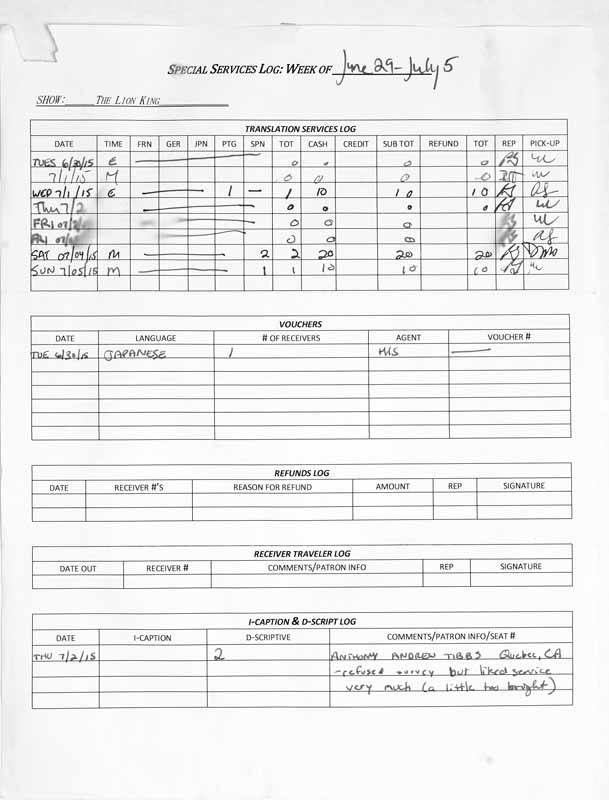 SPECIAL SERVICES LOG: WEEK OF June 29 - July 5
SHOW: THE LION KING
TRANSLATION SERVICES LOG
DATE TIME FRN GER JPN PTG SPN TOT CASH CREDIT SUB TOT REFUND TOT REP PICK-UP
TUES 6/30/15 E — 0 0 0 0
7/1/15 M 0 0 0 0
WED 7/1/15 E — 1 — 1 10 10 10
Thu 7/2 — 0 0 0 0
FRI 07/ — 0 0 0
FRI 07/ — 0 0 0
SAT 07/04/15 M — 2 2 20 20 20
SUN 7/05/15 M — 1 1 10 10 10
VOUCHERS
DATE LANGUAGE # OF RECEIVERS AGENT VOUCHER #
TUE 6/30/15 JAPANESE 1 HIS —
REFUNDS LOG
DATE RECEIVER #'S REASON FOR REFUND AMOUNT REP SIGNATURE
RECEIVER TRAVELER LOG
DATE OUT RECEIVER # COMMENTS/PATRON INFO REP SIGNATURE
I-CAPTION & D-SCRIPT LOG
DATE I-CAPTION D-SCRIPTIVE COMMENTS/PATRON INFO/SEAT #
THU 7/2/15 2 ANTHONY ANDREW TIBBS Quebec, CA
-refused survey but liked service
very much (a little too bright)